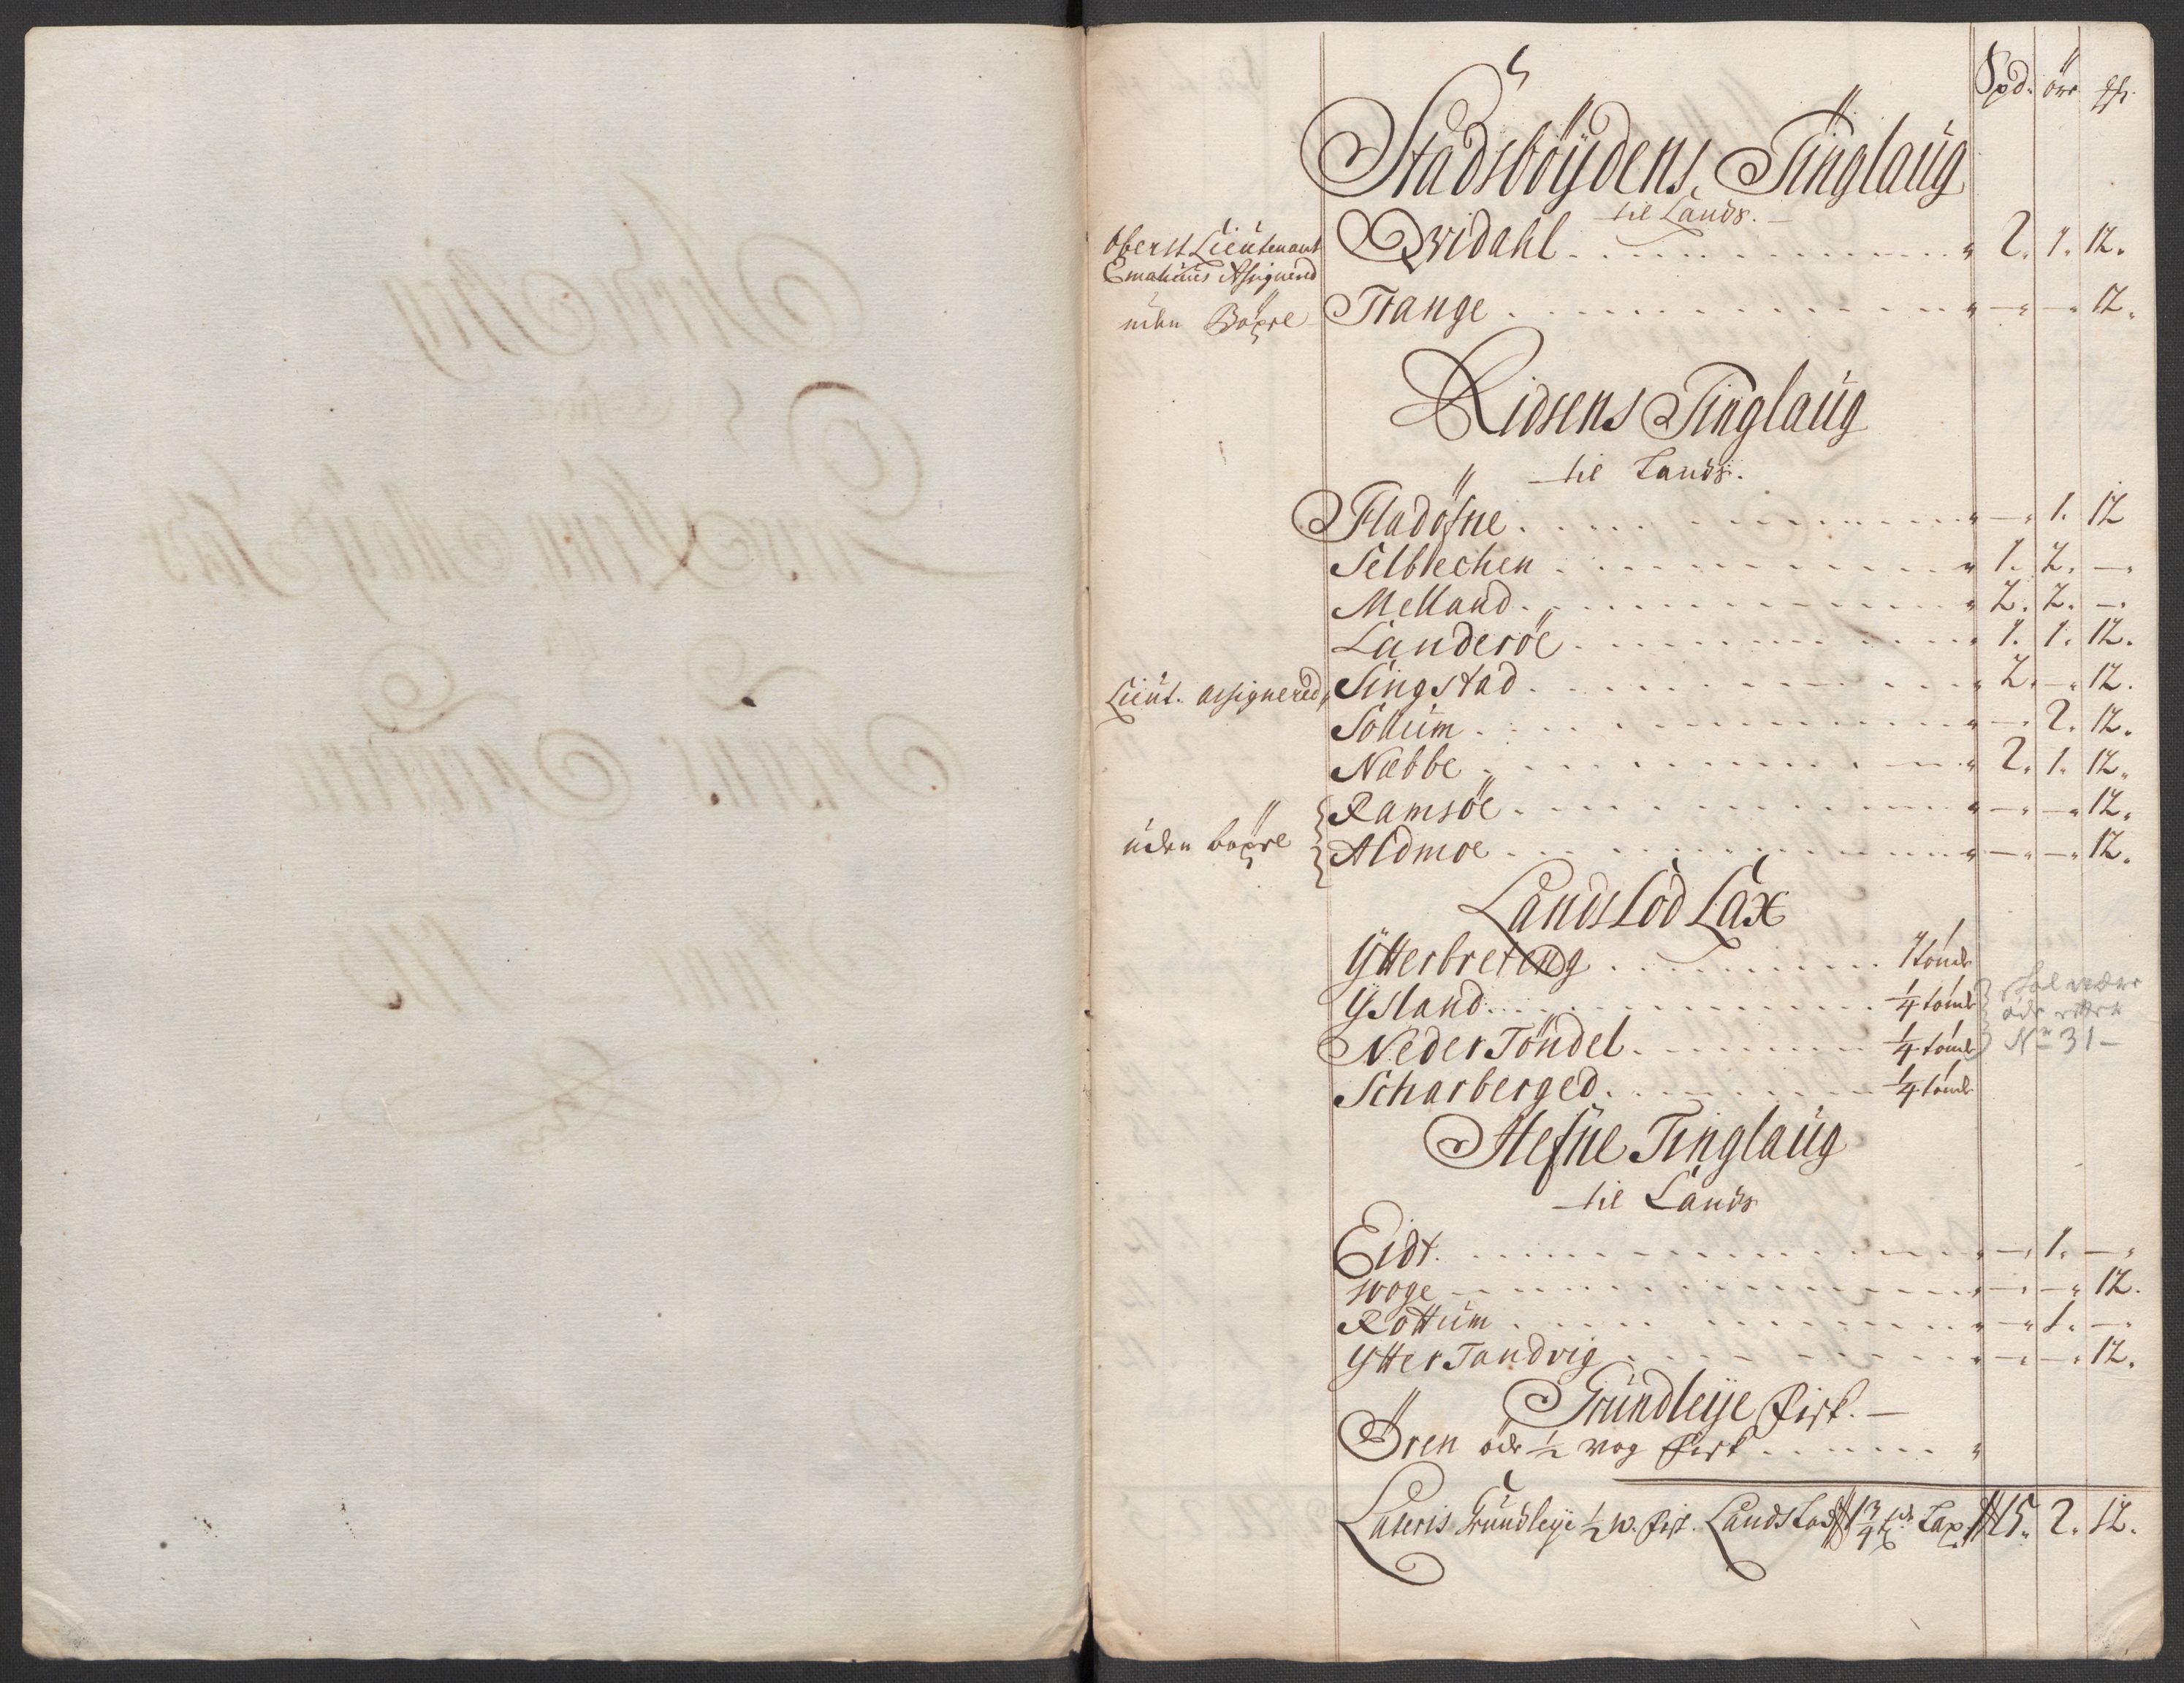 Spd. öre ßl.
Stadsböydens Tinglaug
til Lands.
Oberst Lieutenant Emahuus Assignerid Qvidahl 2. 1. 12.
uden Böxel Trange 12.
Ridsens Tinglaug
til Lands.
Fladösne 1. 12
Selblechen 1. 2. —
Melland 2. 2. —
Landeröe 1. 1. 12.
Lieut. assignered Singstad 2. — 12.
Sollum — 2. 12.
Næbbe 2. 1. 12.
Ramsöe — — 12.
uden böxel Aldmoe — — 12.
Landslod Lax
Ytterbreteng 1 tönde
Ysland 1/4 tönde
Neder Töndel 1/4 tönde
Scharberged 1/4 tönde
skal være öde efter No 31 —
Hefne Tinglaug
til Lands
Eidt — 1. —
woge — — 12.
Rottum — 1. —
Ytter Tandvig — — 12.
Grundleye fisk. —
Ören öde 1/2 vog fisk
Lateris Grundleye 1/2 w. fisk. Landslod 1 3/4 td Lax 15. 2. 12.